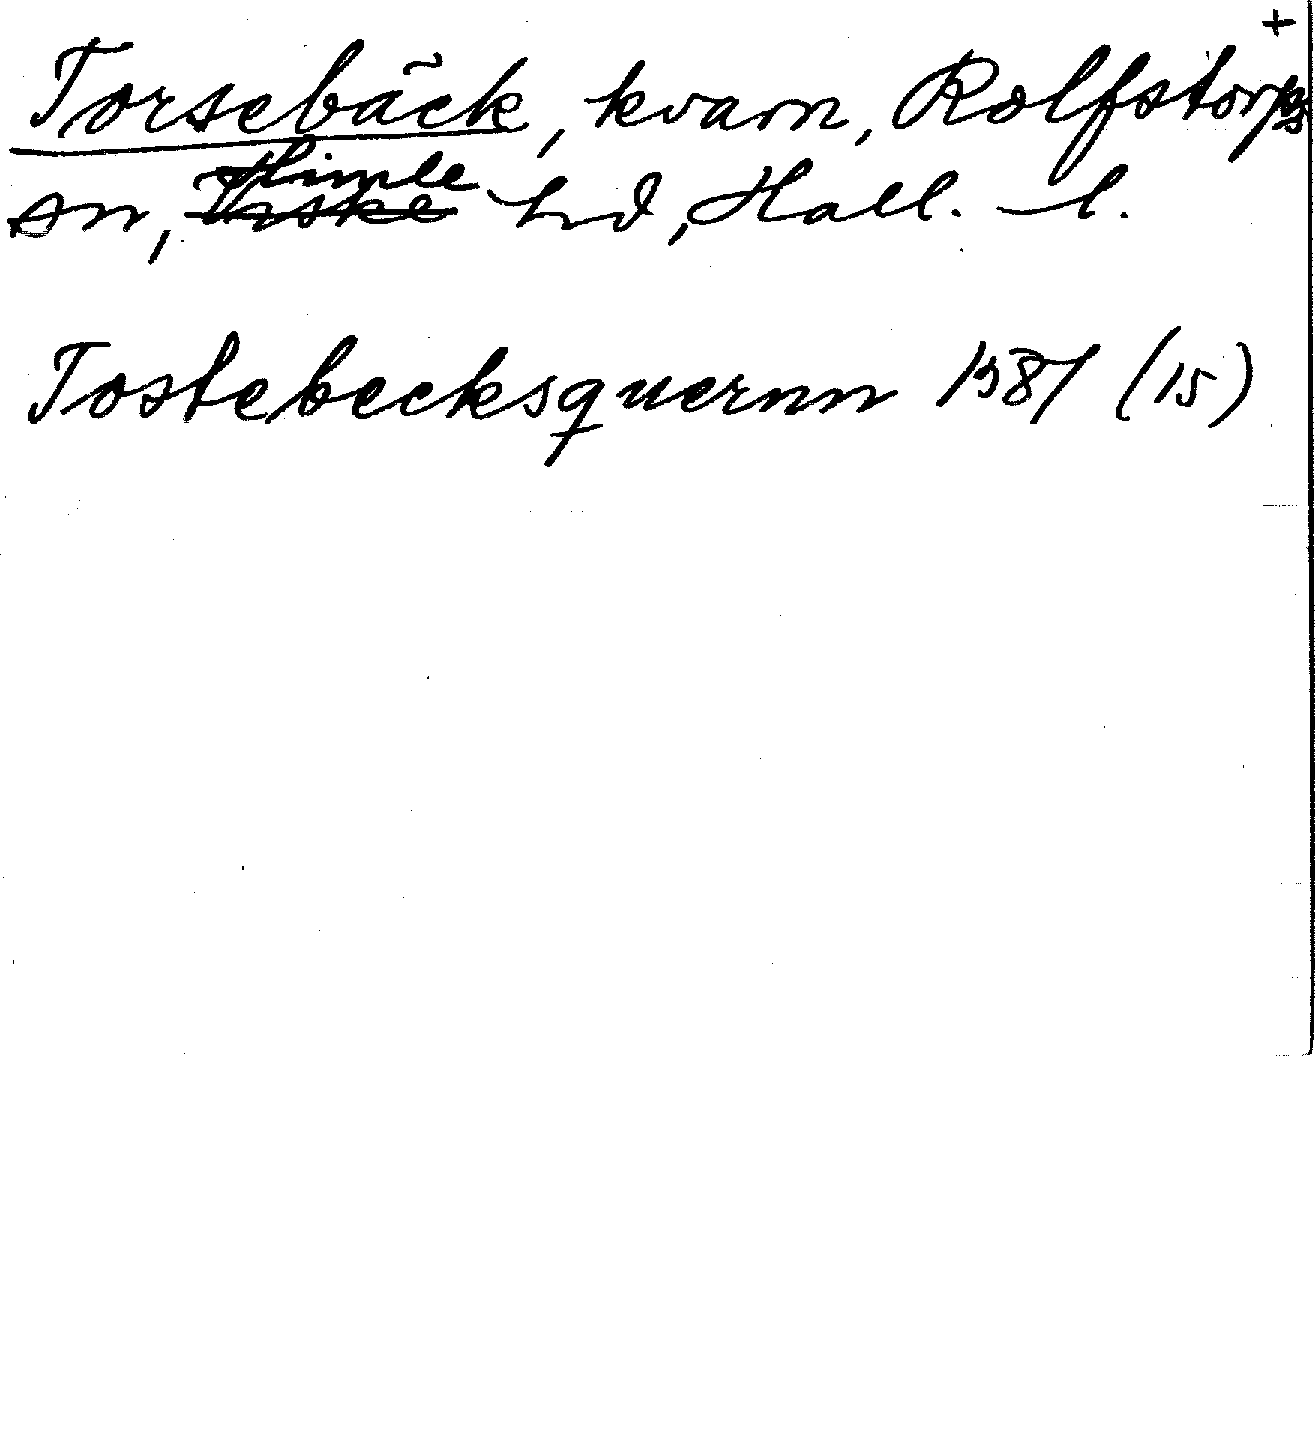 +
Torsebäck, kvarn, Rolfstorps
sn, Himle hd, Hall. l.
Tostebecksquernn 1581 (15)